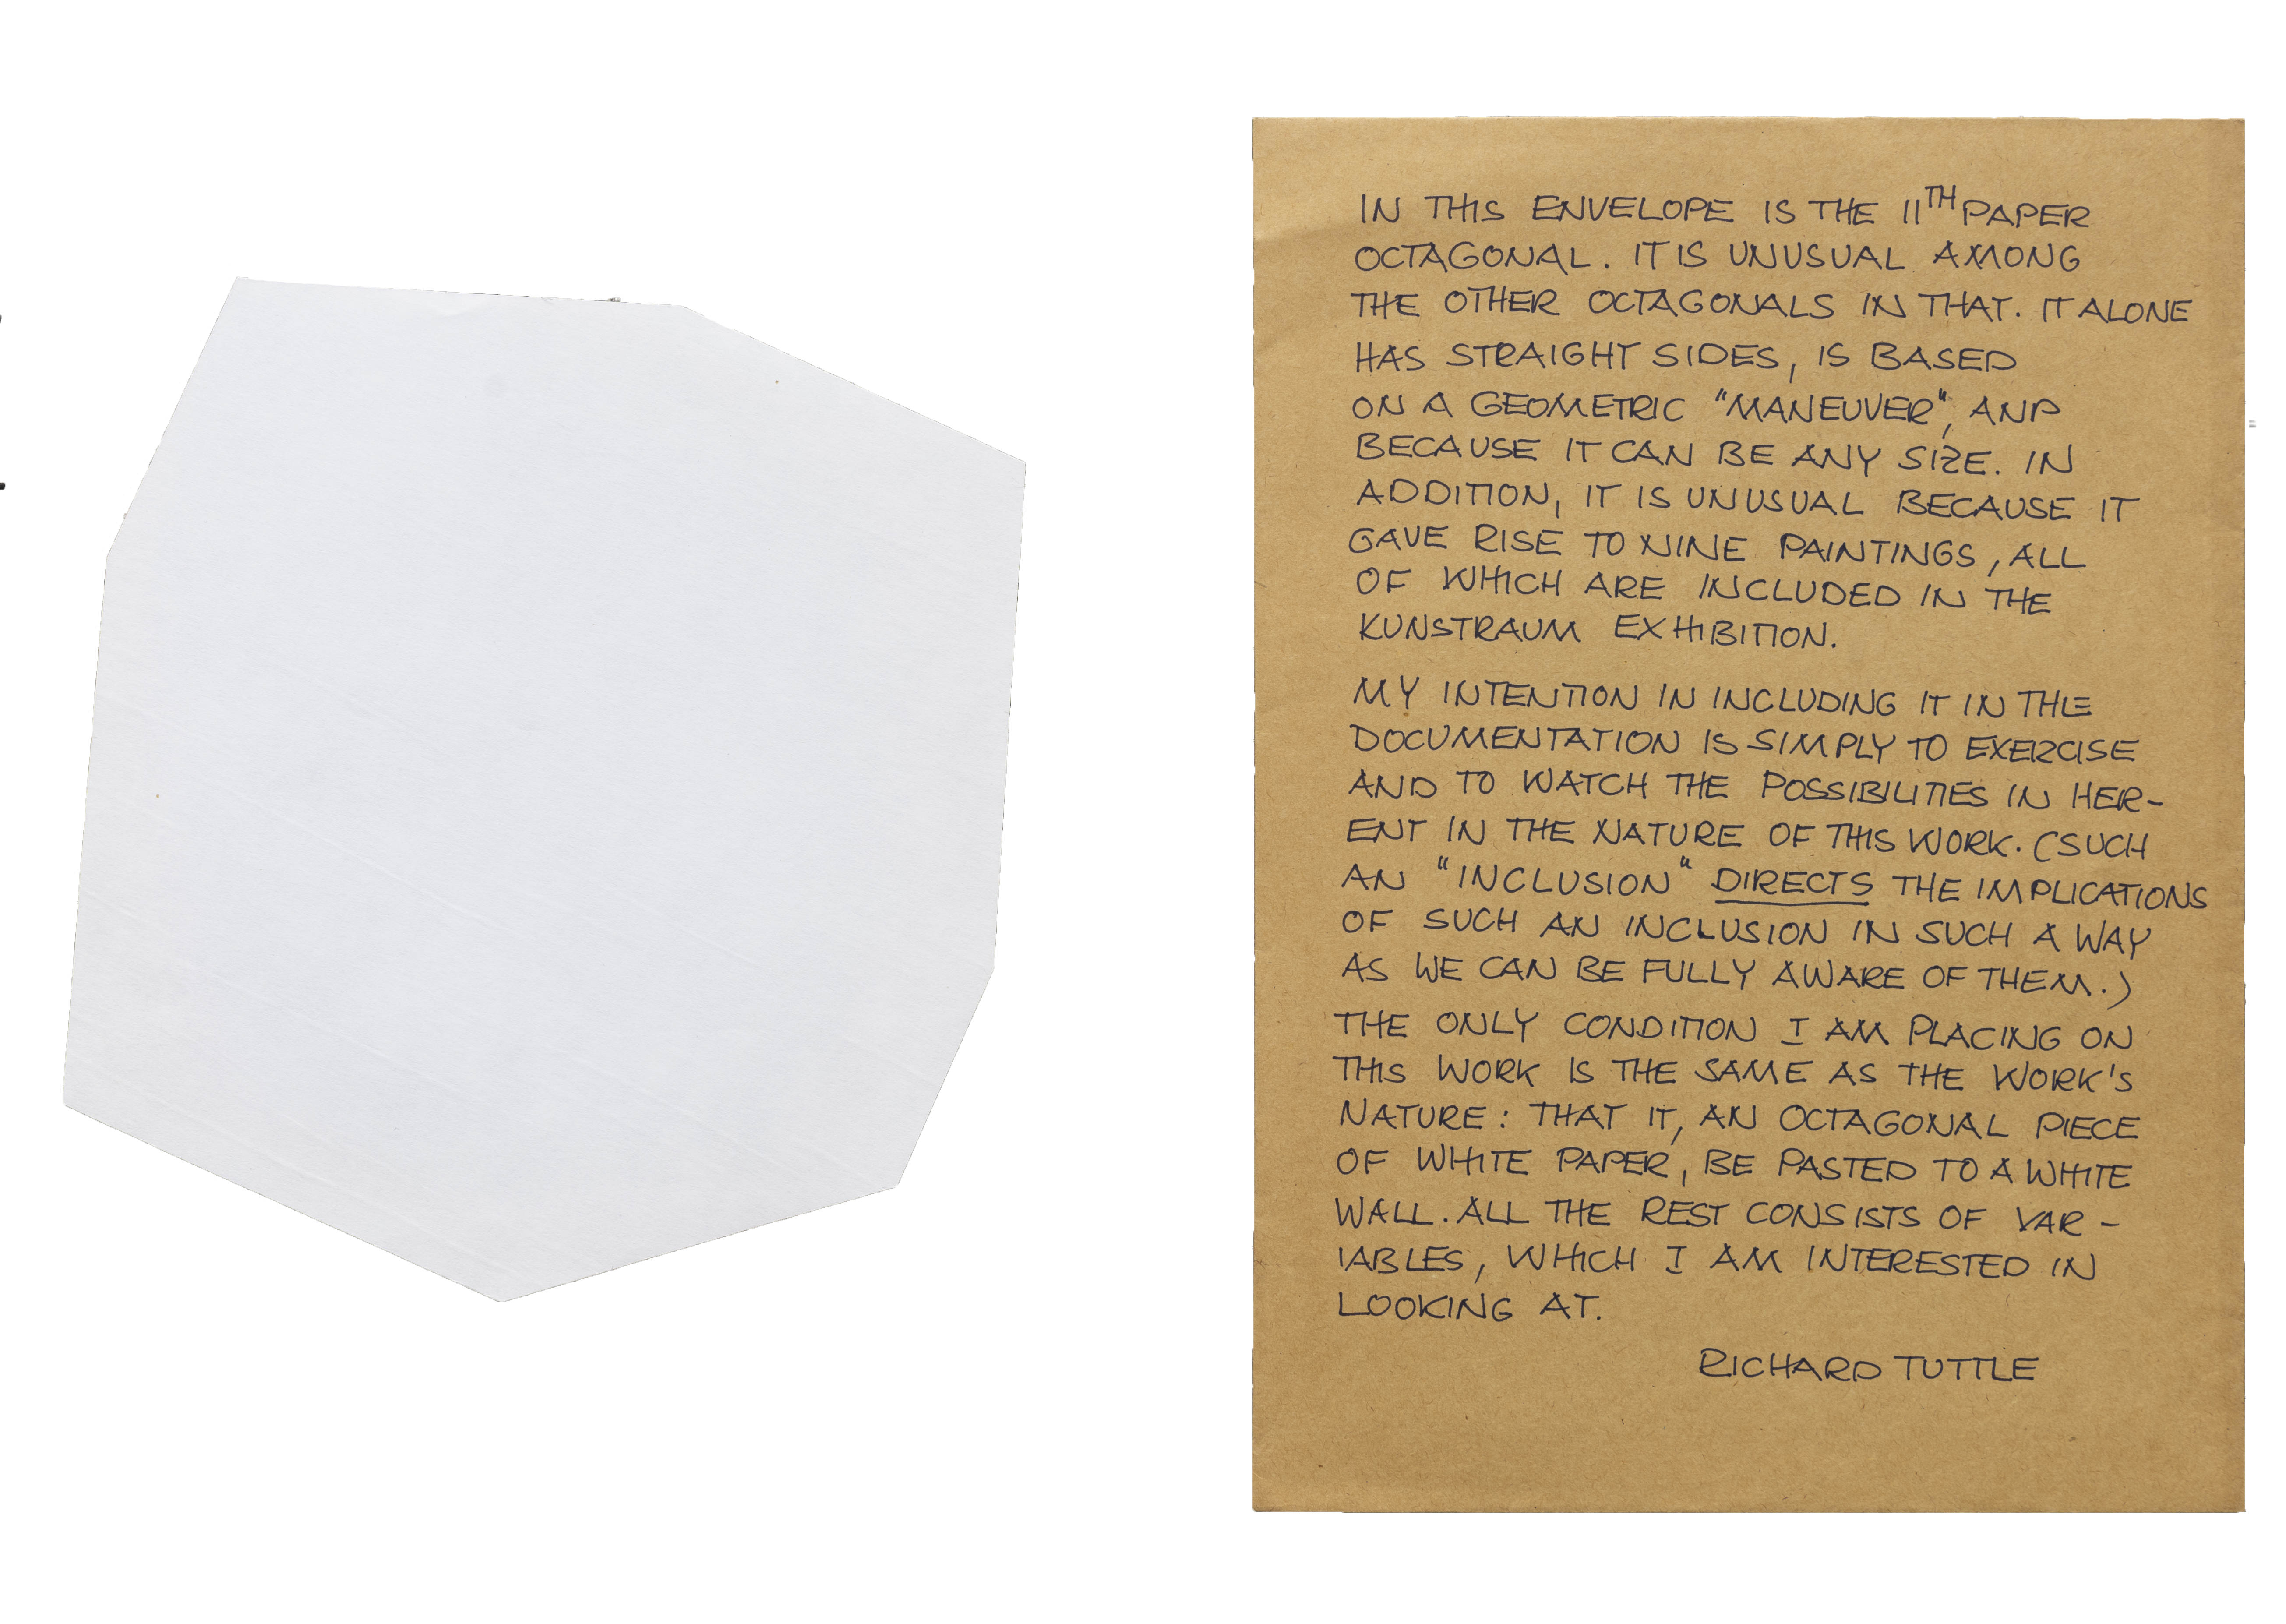 IN THIS ENVELOPE IS THE 11TH PAPER
OCTAGONAL. IT IS UNUSUAL AMONG
THE OTHER OCTAGONALS IN THAT. IT ALONE
HAS STRAIGHT SIDES, IS BASED
ON A GEOMETRIC "MANEUVER", AND
BECAUSE IT CAN BE ANY SIZE. IN
ADDITION, IT IS UNUSUAL BECAUSE IT
GAVE RISE TO NINE PAINTINGS, ALL
OF WHICH ARE INCLUDED IN THE
KUNSTRAUM EXHIBITION.
MY INTENTION IN INCLUDING IT IN THE
DOCUMENTATION IS SIMPLY TO EXERCISE
AND TO WATCH THE POSSIBILITIES IN HER-
ENT IN THE NATURE OF THIS WORK. (SUCH
AN "INCLUSION" DIRECTS THE IMPLICATIONS
OF SUCH AN INCLUSION IN SUCH A WAY
AS WE CAN BE FULLY AWARE OF THEM.)
THE ONLY CONDITION I AM PLACING ON
THIS WORK IS THE SAME AS THE WORK'S
NATURE: THAT IT, AN OCTAGONAL PIECE
OF WHITE PAPER, BE PASTED TO A WHITE
WALL. ALL THE REST CONSISTS OF VAR-
IABLES, WHICH I AM INTERESTED IN
LOOKING AT.
RICHARD TUTTLE